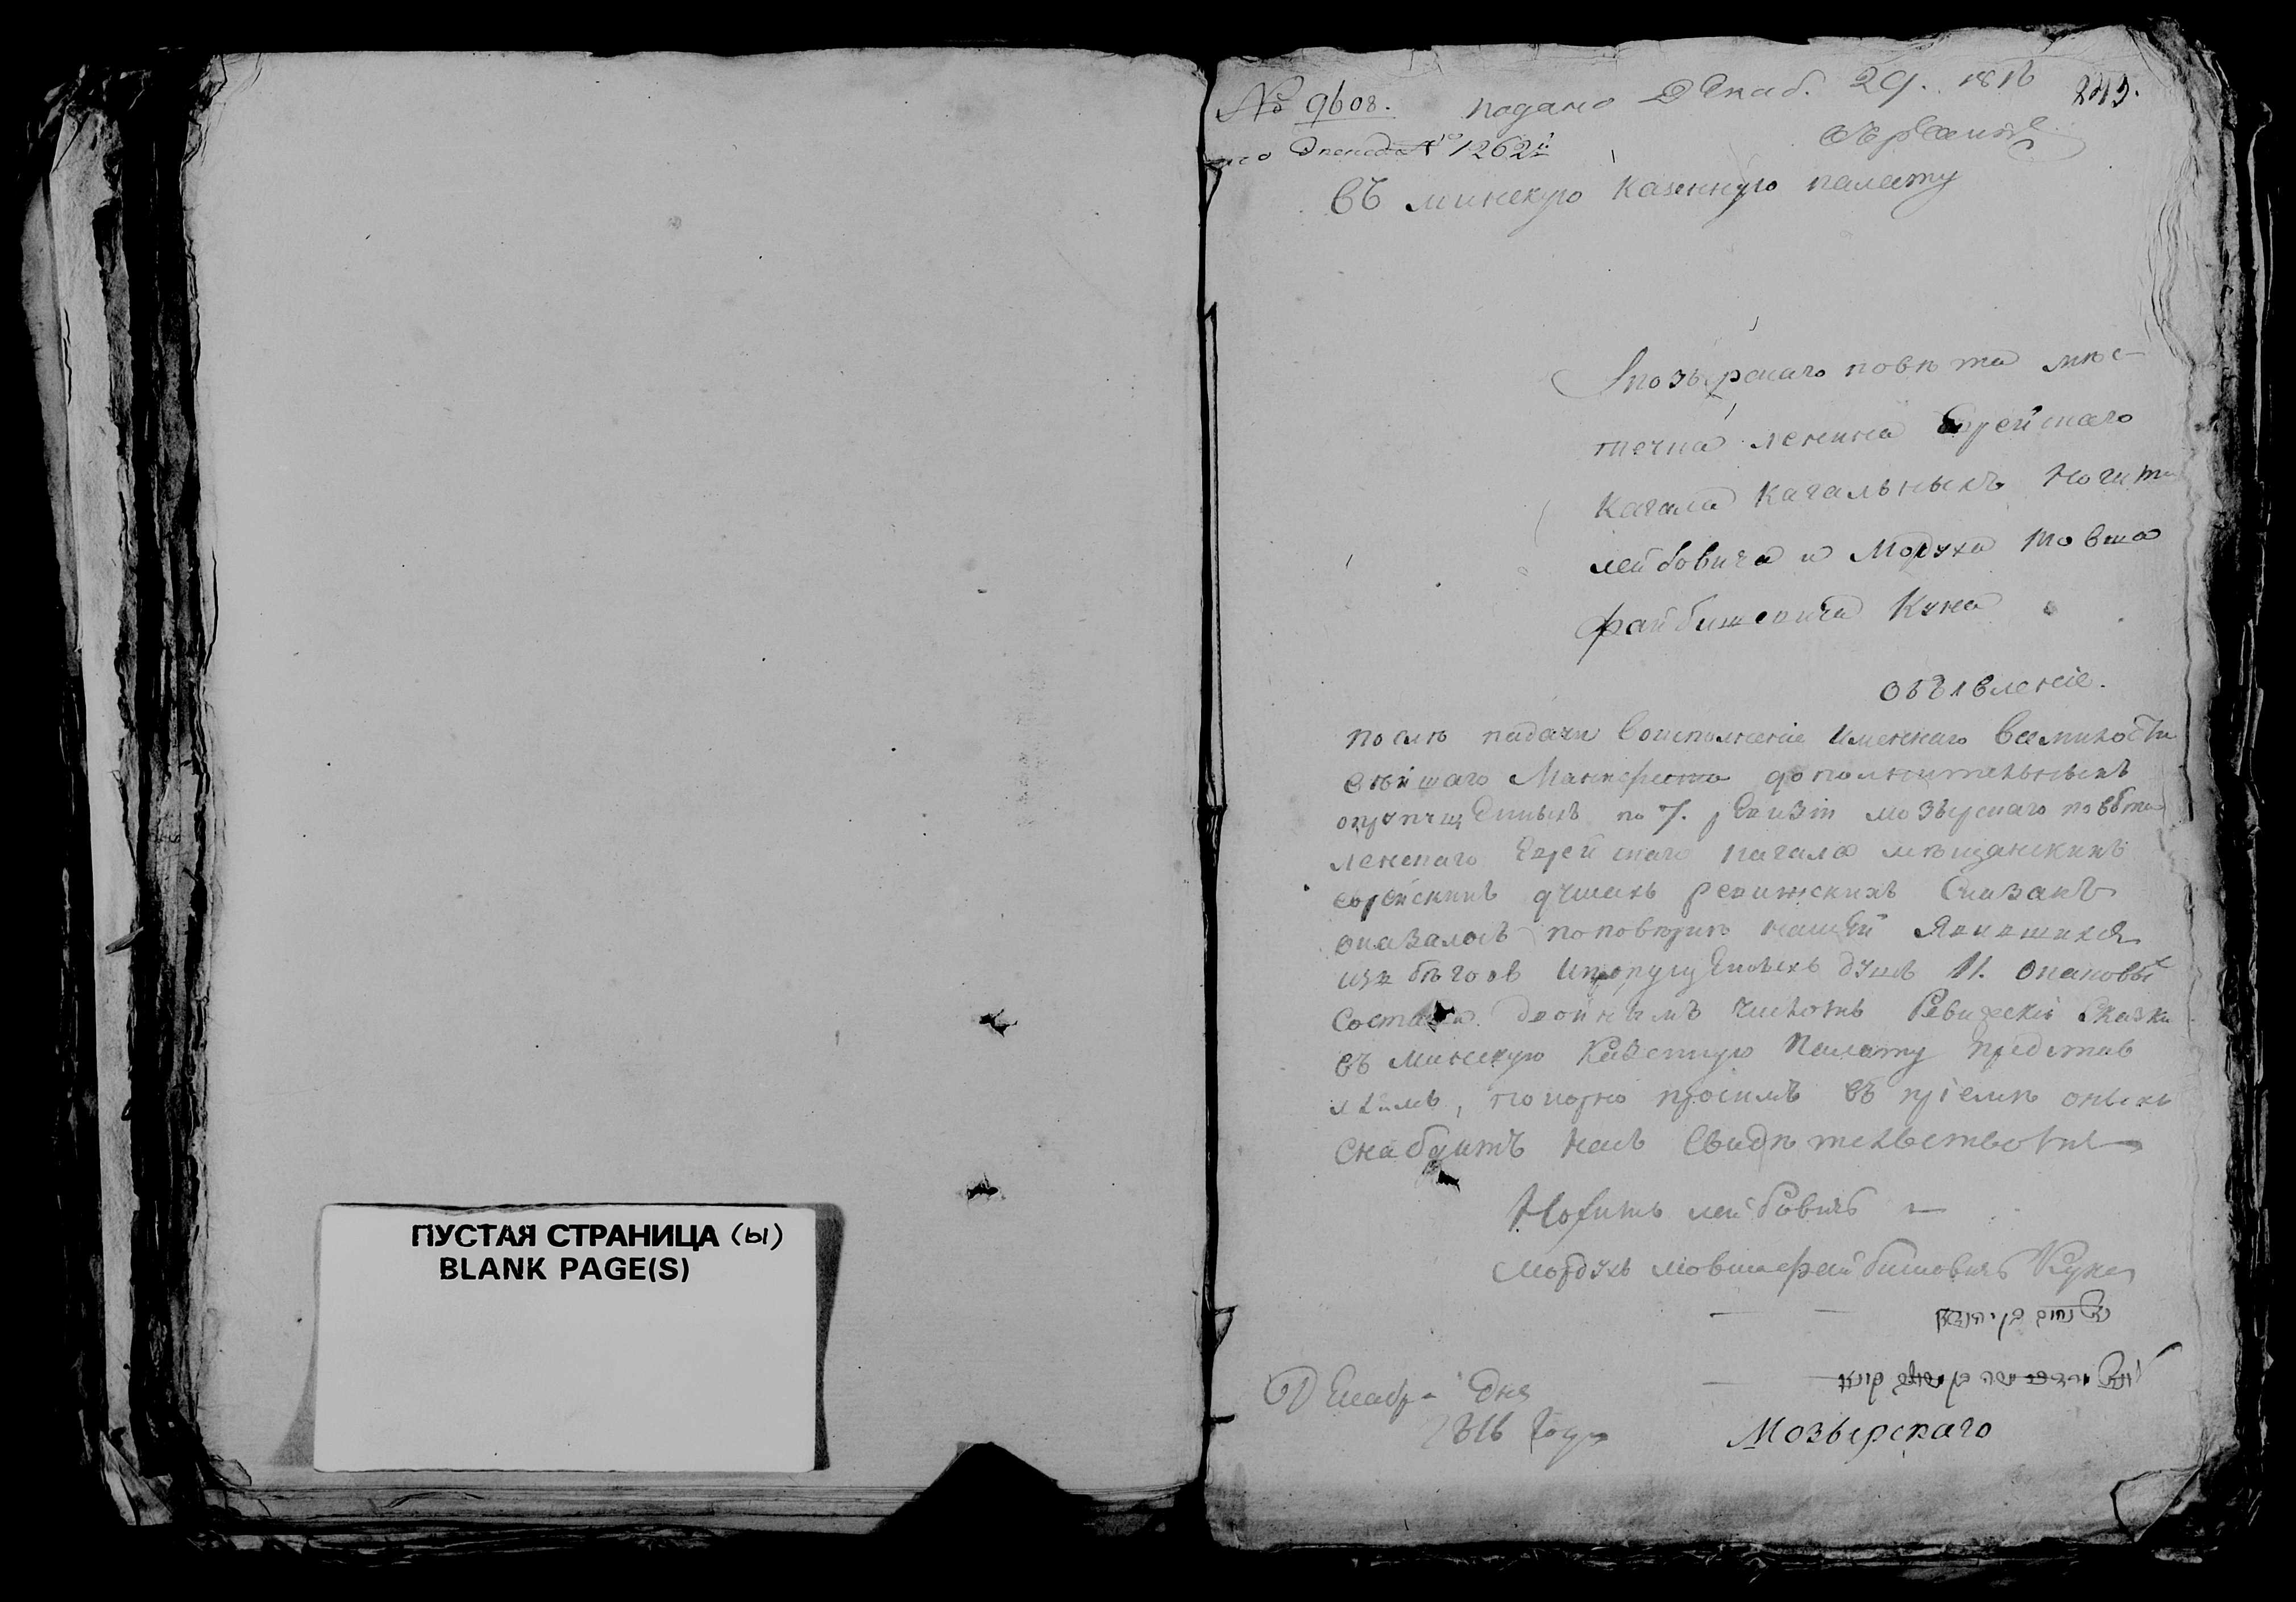 ПУСТАЯ СТРАНИЦА (ы)
BLANK PAGE(S)
№ 9608. подано Декаб. 29. 1816 243.
1262й
въ минскую казенную палату
Мозырскаго повѣта мѣс-
течка ленина Еврейскаго
Кагала Кагальныхъ
лейбовича и Мордуха Мовша
Файбишевича Куна
объявленіе.
послѣ падачи воисполненіе Именнаго Всемилости
вѣйшаго Манифеста дополнительныхъ
опропущенныхъ по 7. ревизіи мозырскаго повѣта
ленскаго Еврейскаго кагала мѣщанскихъ
еврейскихъ душахъ ревижскихъ Сказакъ
оказалось поповѣрке нашей Явившихся
изъ бѣговъ ипропущенныхъ душъ 11. оваковых
Состава двойнымъ числомъ Ревижскіе Сказки
въ Минскую Казенную Палату представ
ляемъ, покорно просимъ въ пріемѣ оныхъ
Снабдить насъ Свидѣтельствомъ
лейбовичъ
Мордухъ мовшафайбишовичъ Куна
Декабря дня
1816 Году
Мозырскаго